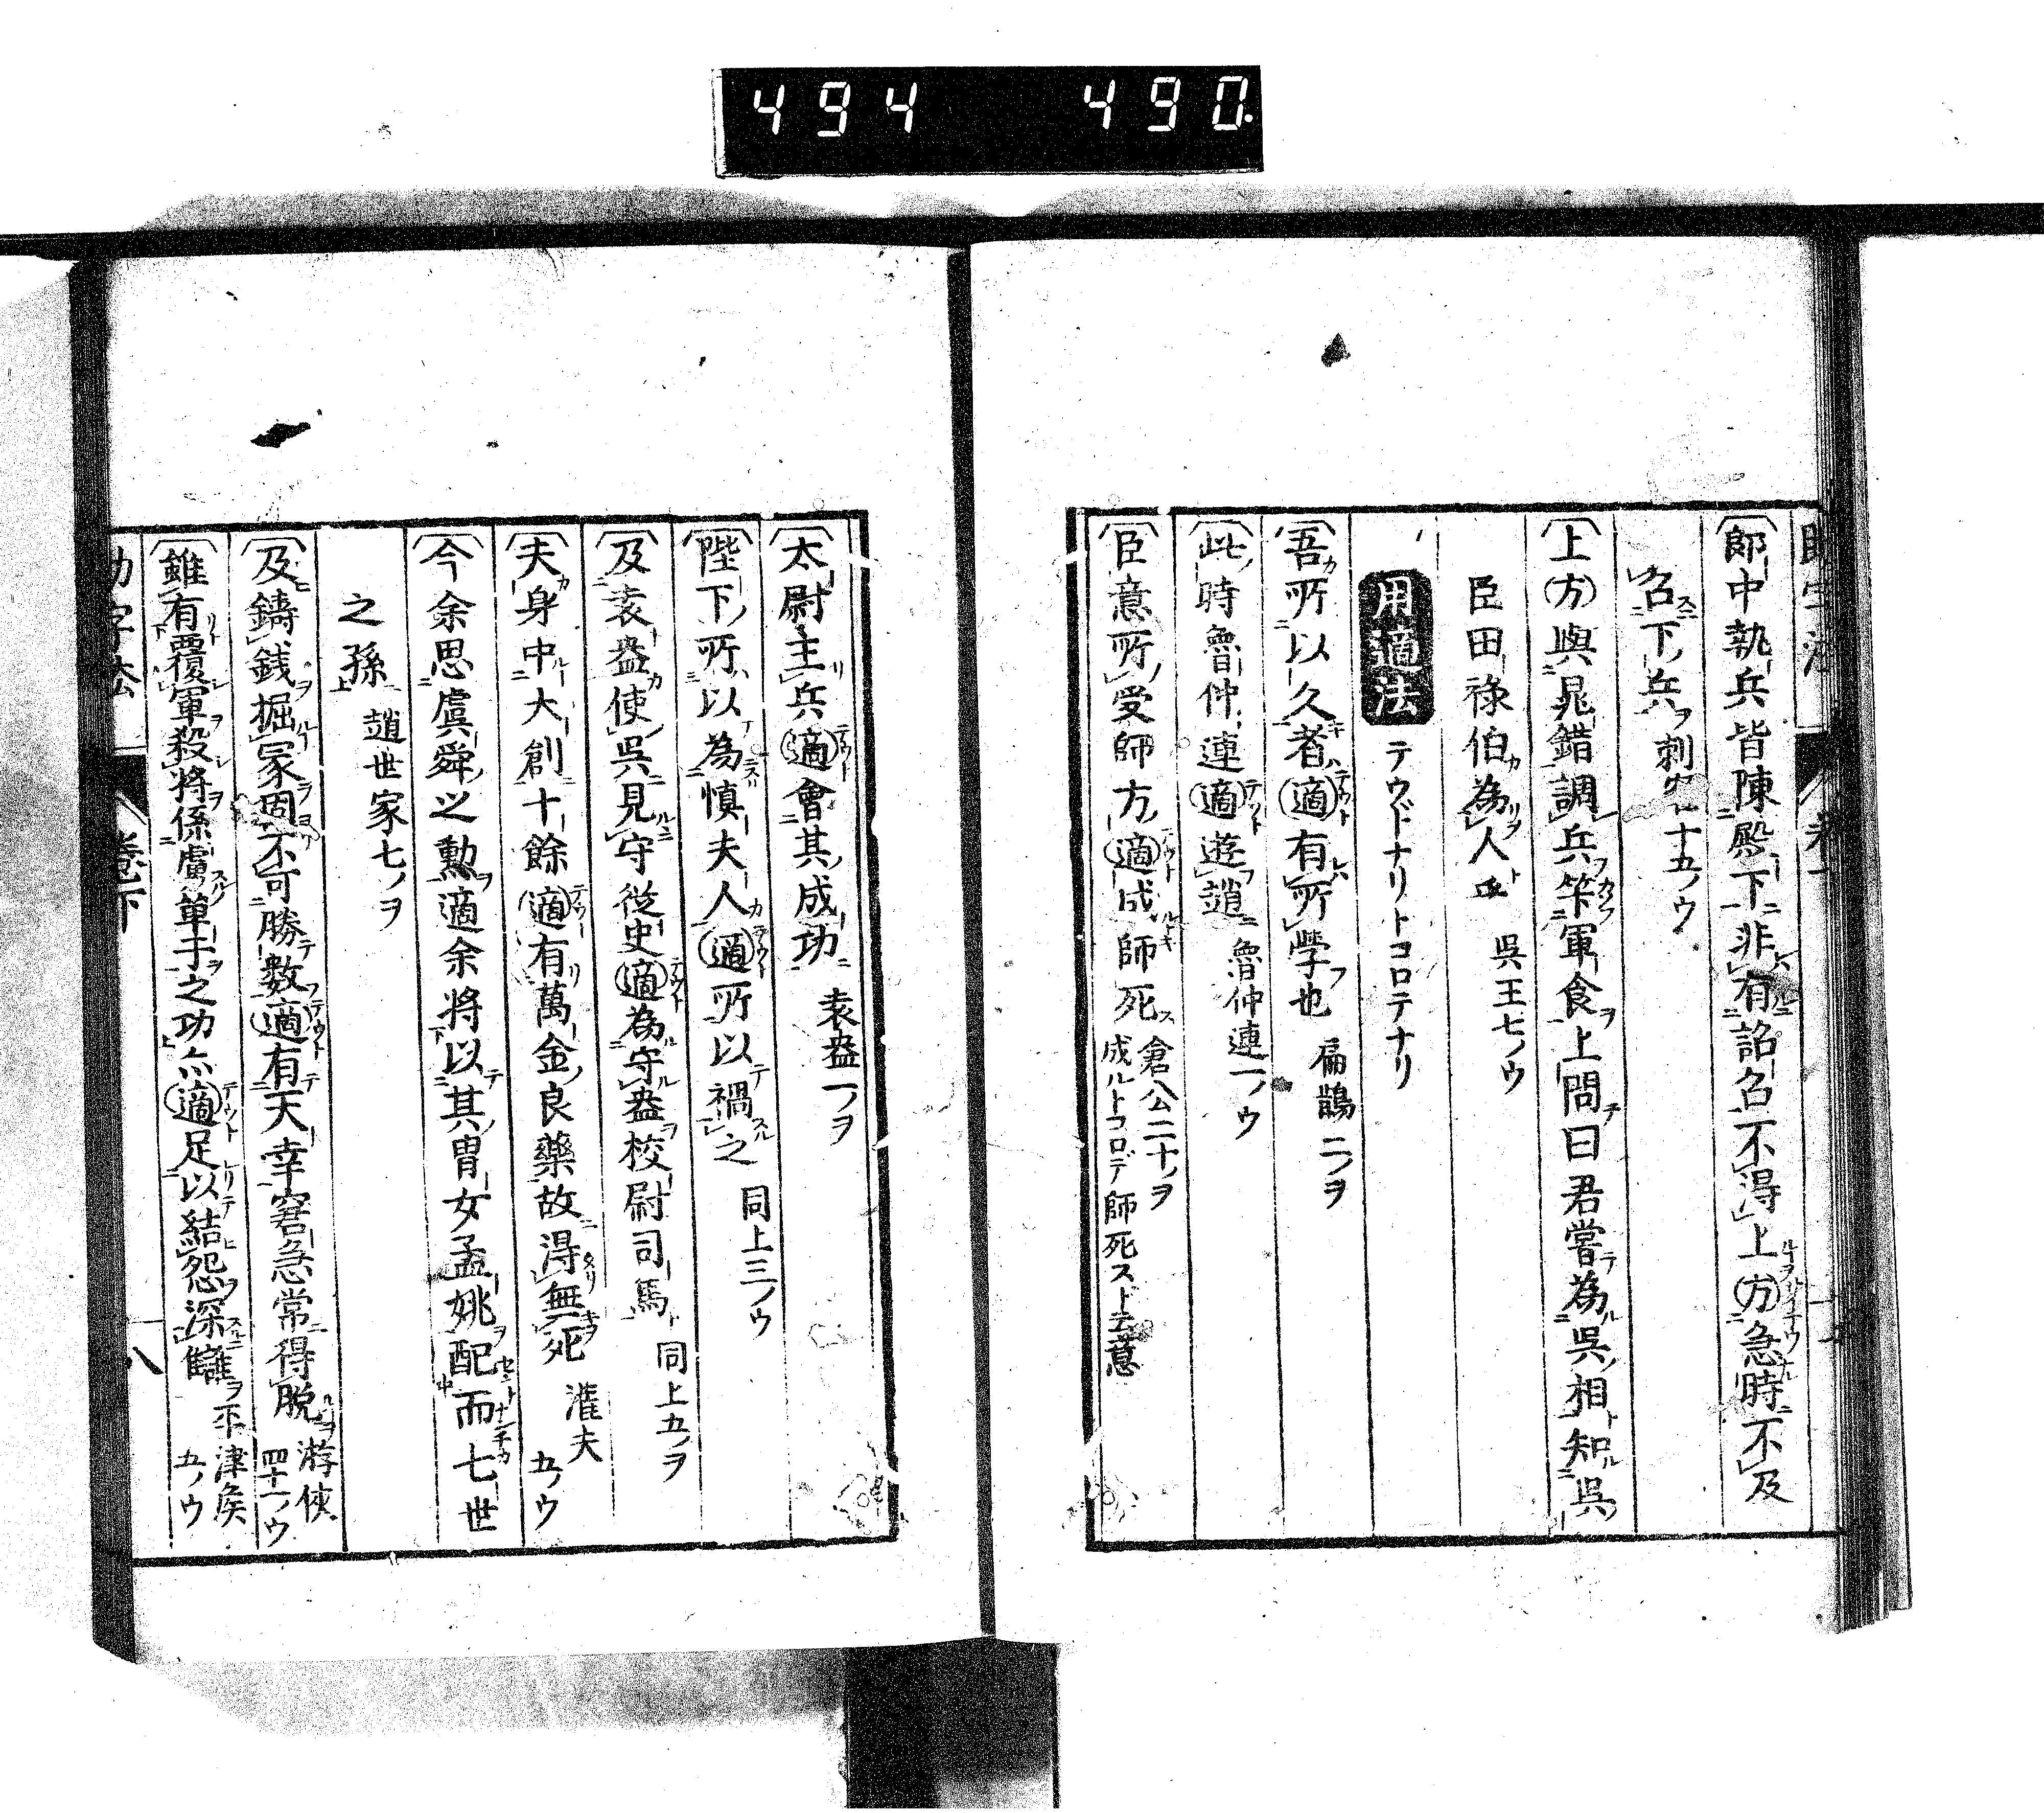 494 490.
郎中執兵皆陳殿下非有詔召不得上方急時不及
召下兵 刺客二十五ノウ
上方與晁錯調兵筭軍食上問曰君嘗為吳相知吳
臣田祿伯為人乎 吳王七ノウ
用適法 テウドナリトコロテナリ
吾所以久者適有所學也 扁鵲二ノヲ
此時魯仲連適遊趙 魯仲連一ノウ
臣意所受師方適成師死 倉公二十ノヲ
成ルトコロデ師死スト云意
太尉主兵適會其成功 袁盎一ノヲ
陛下所以為慎夫人適所以禍之 同上三ノウ
及袁盎使吳見守從史適為守盎校尉司馬 同上五ノヲ
夫身中大創十餘適有萬金良藥故得無死 灌夫五ノウ
今余思虞舜之勲適余将以其胄女孟姚配而七世
之孫 趙世家七ノヲ
及鑄銭掘冢固不可勝數適有天幸窘急常得脱 游俠四十一ノウ
雖有覆軍殺将係虜單于之功亦適足以結怨深讎 平津侯五ノウ
助字法 卷下 八